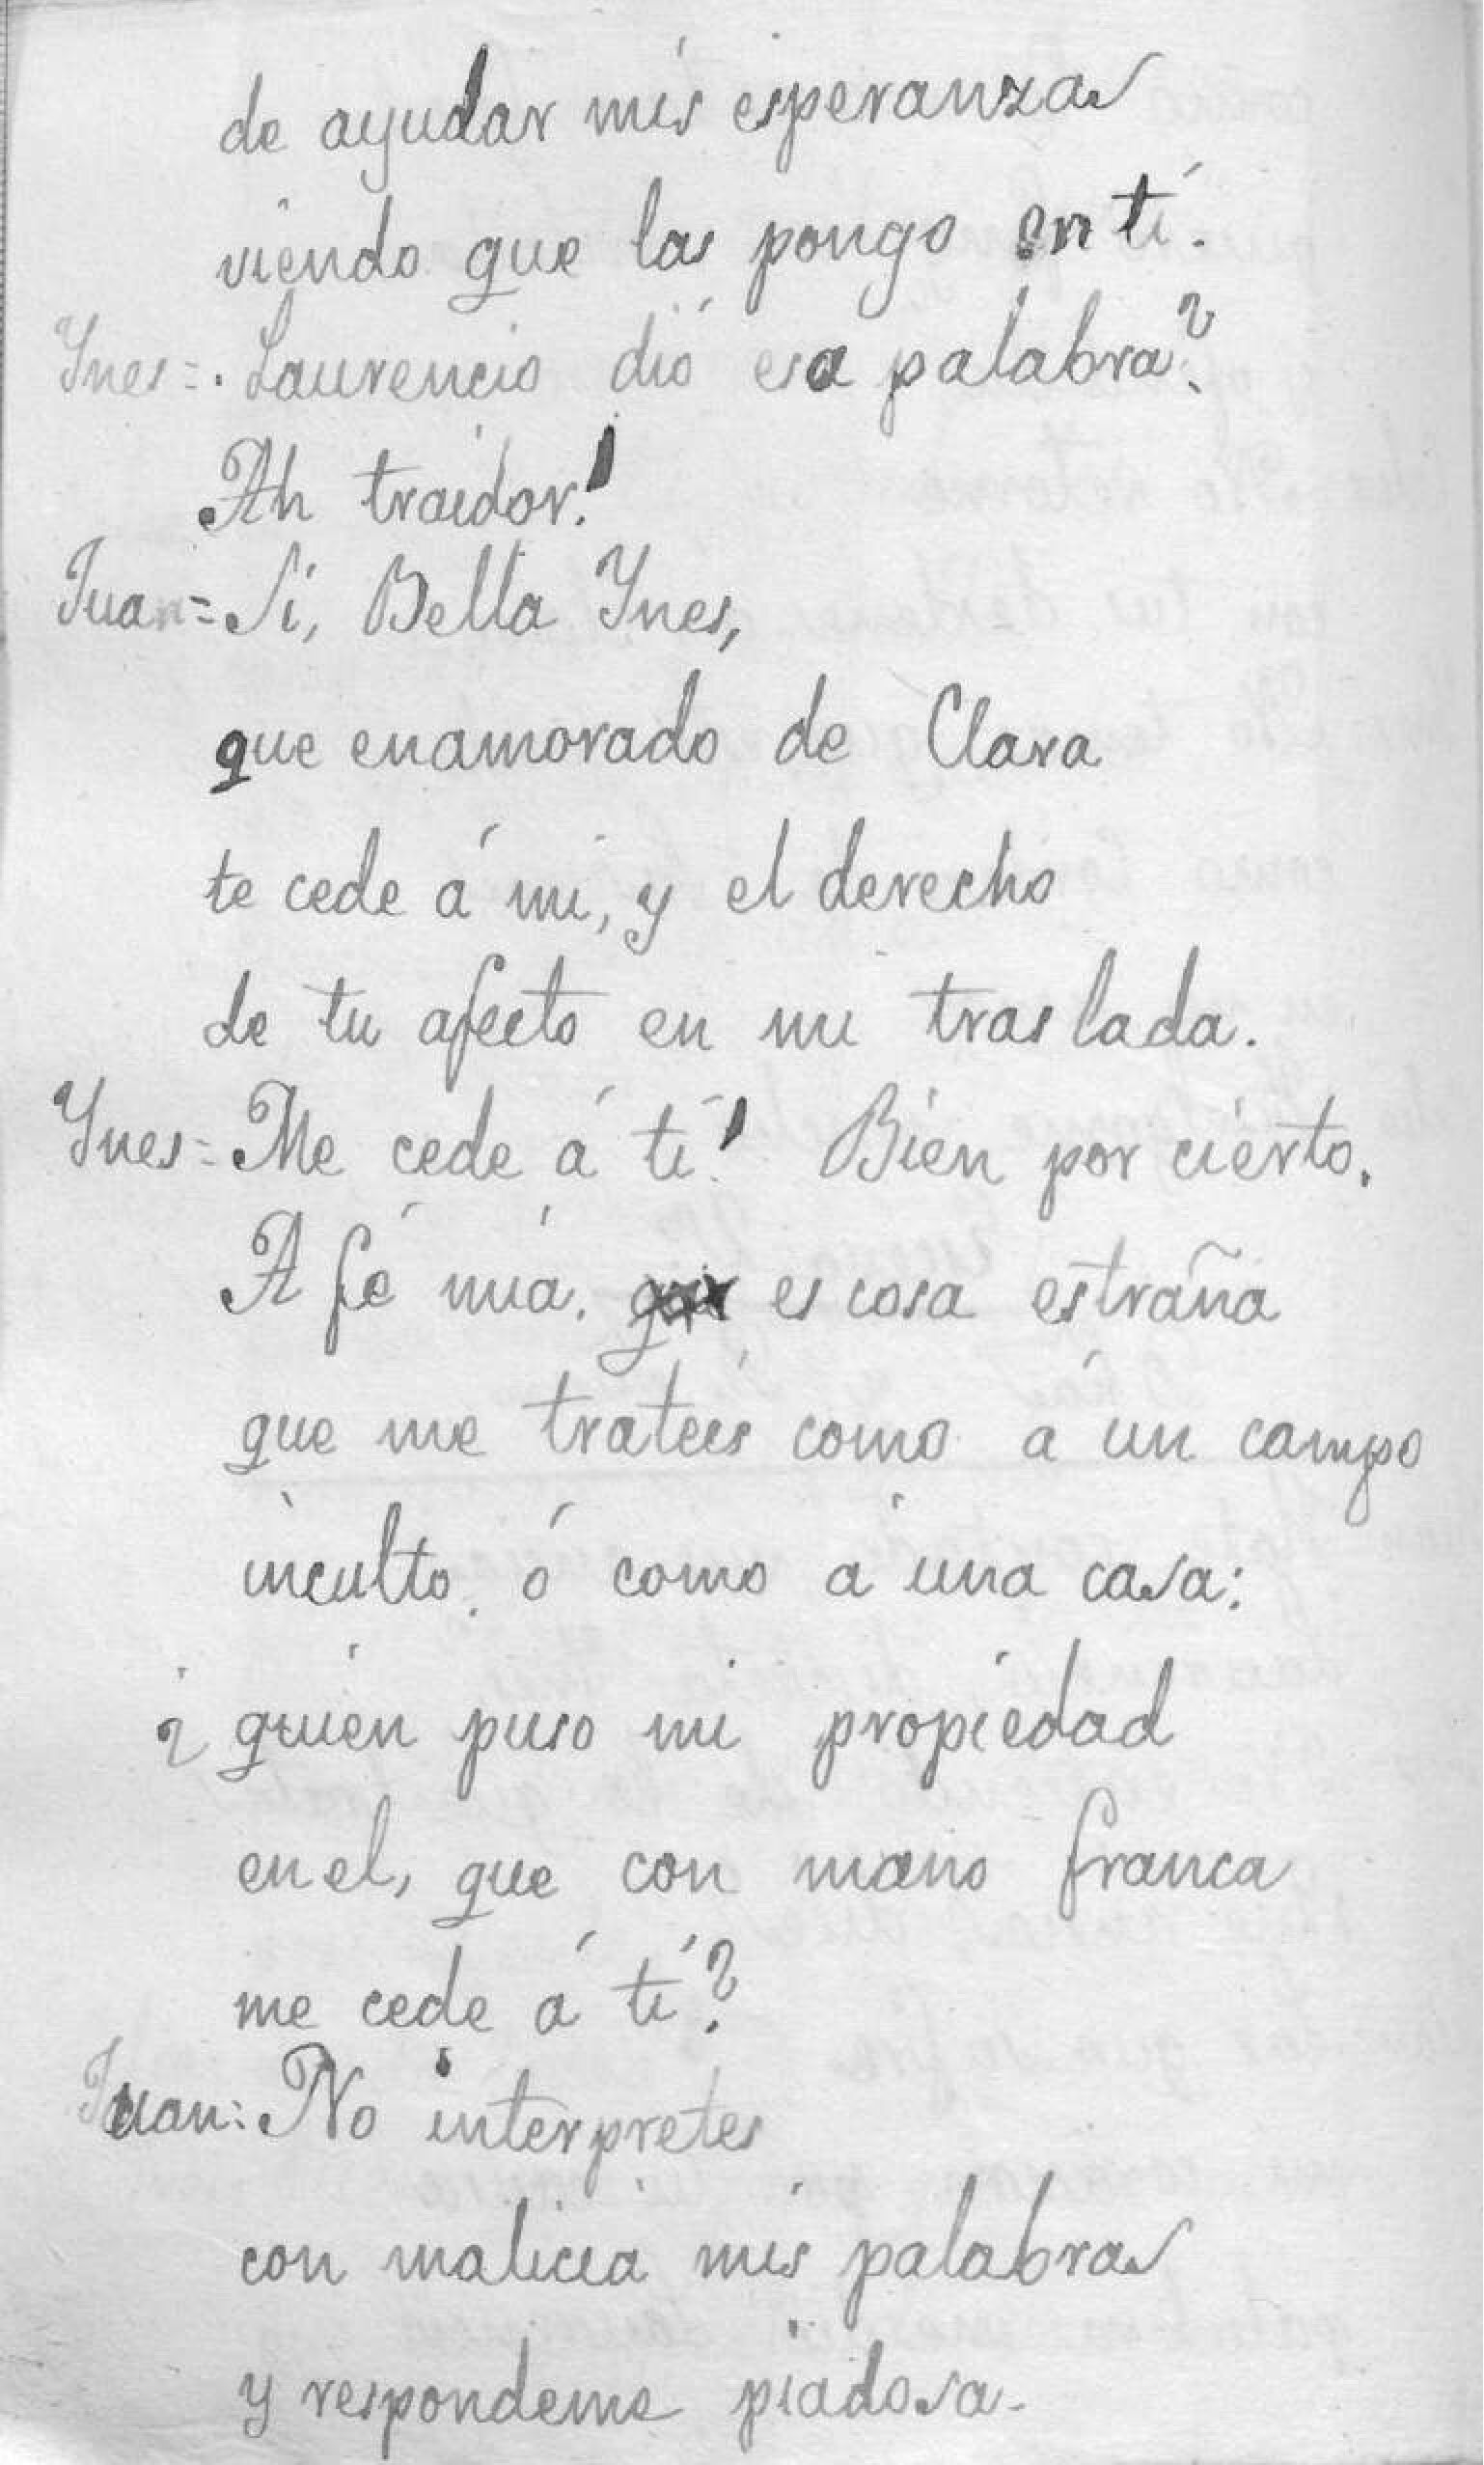 de ayudar mis esperanzas
viendo que las pongo en tí.
Ynes=. Laurencio dió esa palabra?
Ah traidor!
Juan= Si, Bella Ynes,
que enamorado de Clara
te cede á mi, y el derecho
de tu afecto en mi traslada.
Ynes= Me cede á tí! Bien por cierto.
A fé mia. es cosa estraña
que me trateis como a un campo
inculto, ó como a una casa:
¿quien puso mi propiedad
en el, que con mano franca
me cede á tí?
Juan: No interpretes
con malicia mis palabras
y respondeme piadosa.